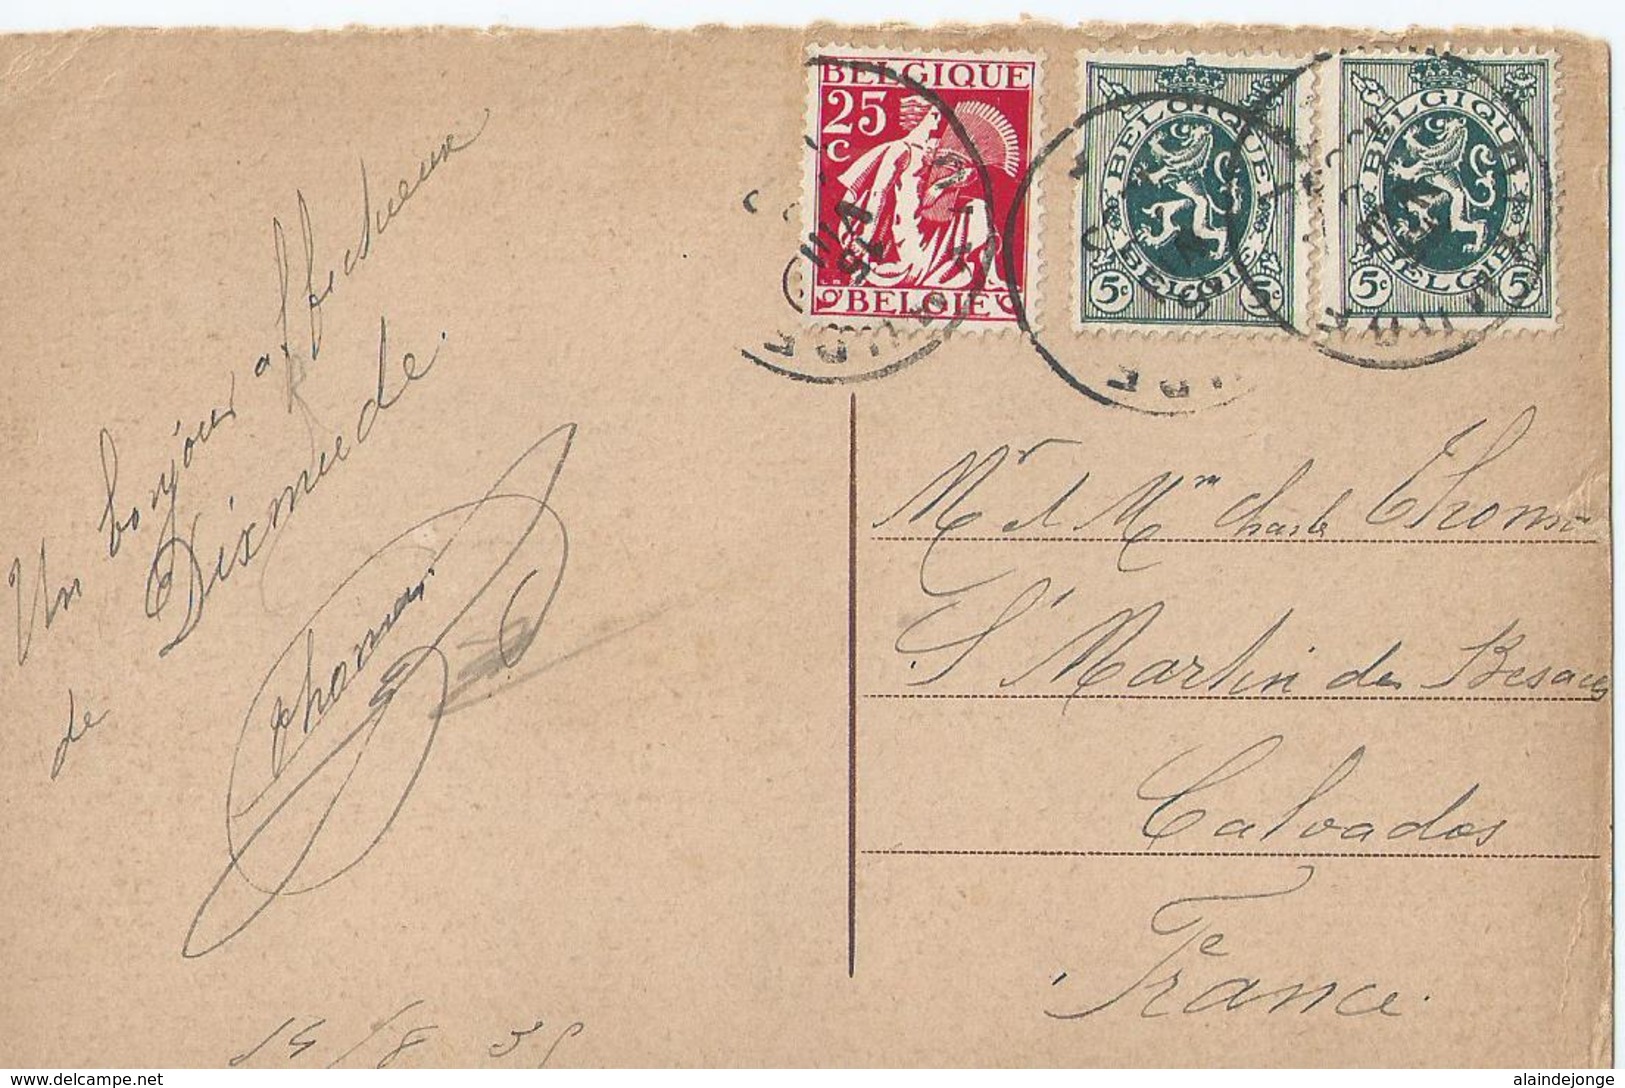 BELGIQUE
25
c
BELGIE
BELGIQUE
BELGIE
5c
5c
BELGIQUE
BELGIE
5c
5c
Un bonjour affectueux
de Dixmude.
Thomas
14/8 35
Mr et Mme Charles
St Martin des Besaces
Calvados
France.
www.delcampe.net
alaindejonge